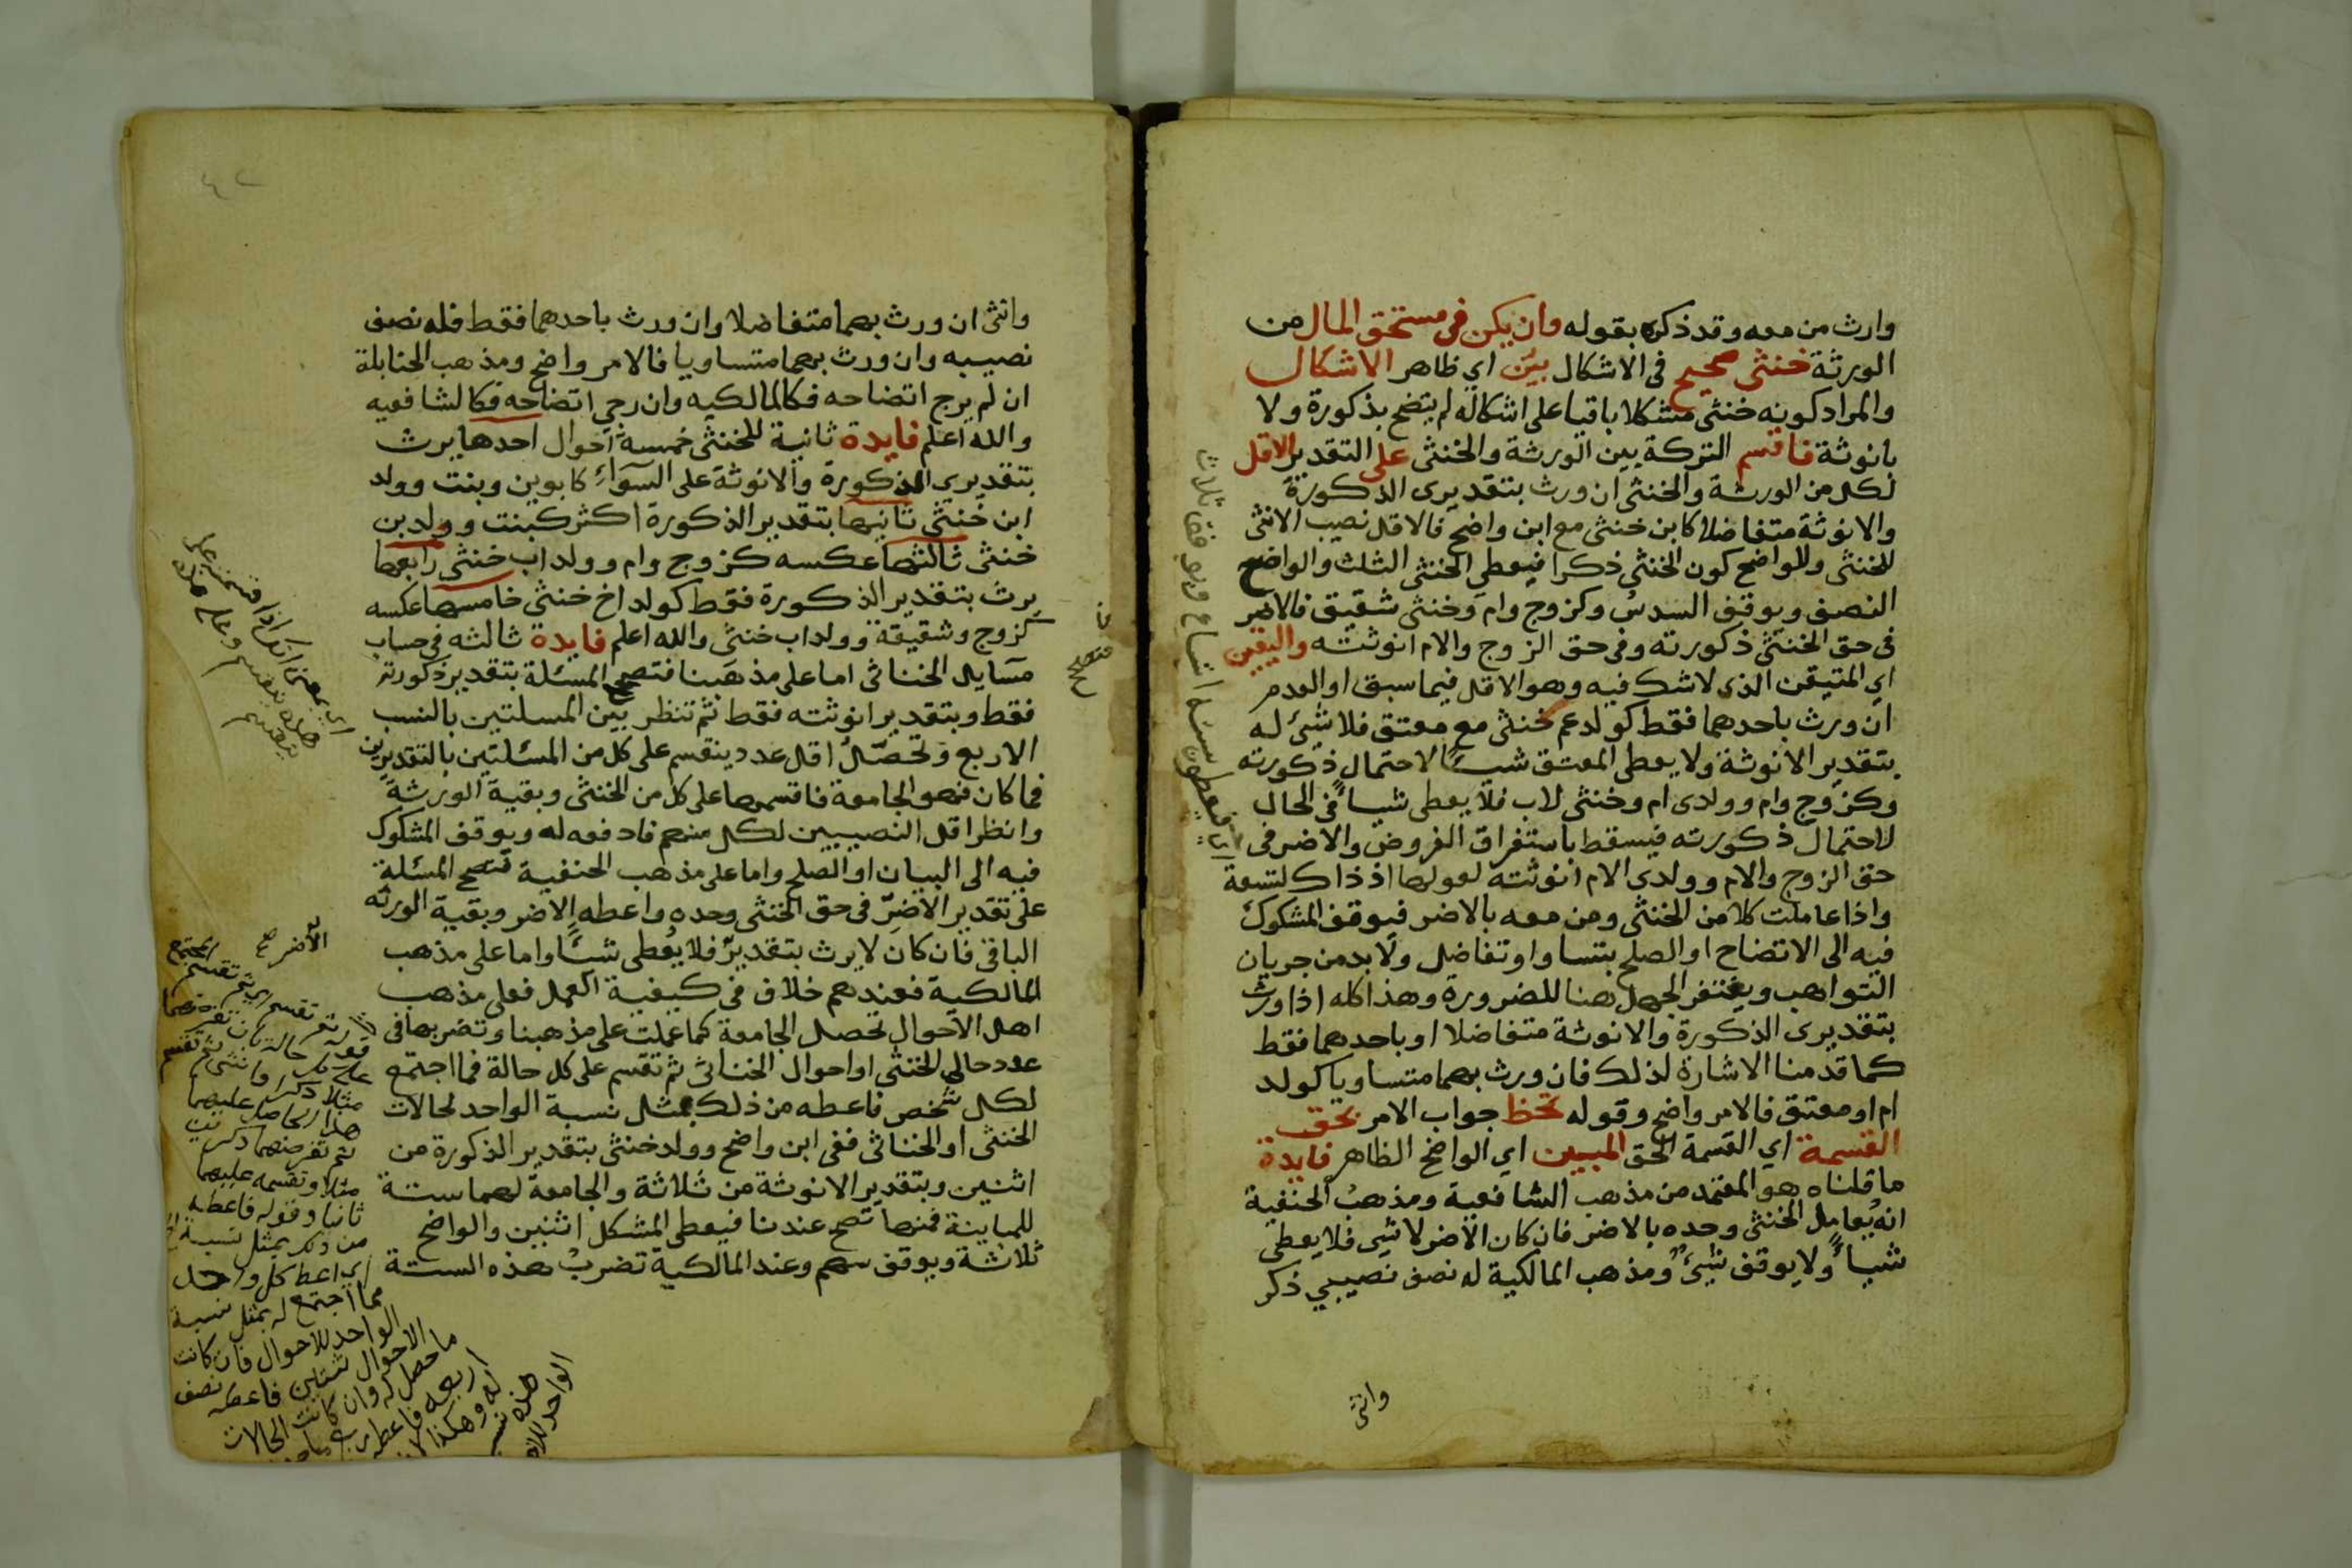 وارث من معه وقد ذكره بقوله وان يكن في مستحق المال من
الورثة خنثى صحيح في الاشكال بيّن اي ظاهر الاشكال
والمراد كونه خنثى مشكلا باقيا على اشكاله لم يتضح بذكورة ولا
بانوثة فاقسم التركة بين الورثة والخنثى على التقدير الاقل
لكل من الورثة والخنثى ان ورث بتقديرى الذكورة
والانوثة متفاضلا كابن خنثى مع ابن واضح فالاقل نصيب الانثى
للخنثى وللواضح كون الخنثى ذكرا فيعطي الخنثى الثلث والواضح
النصف ويوقف السدس وكزوج وام وخنثى شقيق فالاضر
في حق الخنثى ذكورته وفي حق الزوج والام انوثته واليقين
اي المتيقن الذى لاشك فيه وهو الاقل فيما سبق او العدم
ان ورث باحدهما فقط كولد عم خنثى مع معتق فلا شيئ له
بتقدير الانوثة ولا يعطى المعتق شيئا لاحتمال ذكورته
وكزوج وام وولدى ام وخنثى لاب فلا يعطى شيأ في الحال
لاحتمال ذكورته فيسقط باستغراق الفروض والاضر في
حق الزوج والام وولدى الام انوثته لعولها اذ ذاك لتسعة
واذا عاملت كلا من الخنثى ومن معه بالاضر فيوقف المشكوك
فيه الى الاتضاح او الصلح بتساو او تفاضل ولا بد من جريان
التواهب ويغتفر الجهل هنا للضرورة وهذا كله اذا ورث
بتقديرى الذكورة والانوثة متفاضلا او باحدهما فقط
كما قدمنا الاشارة لذلك فان ورث بهما متساويا كولد
ام او معتق فالامر واضح وقوله تحظ جواب الامر بحق
القسمة اي القسمة الحق المبين اي الواضح الظاهر فايدة
ما قلناه هو المعتمد من مذهب الشافعية ومذهب الحنفية
انه يعامل الخنثى وحده بالاضر فان كان الاضر لا شى فلا يعطى
شيأ ولا يوقف شيئ ومذهب المالكية له نصف نصيبي ذكر
وانثى
وانثى ان ورث بهما متفاضلا وان ورث باحدهما فقط فله نصف
نصيبه وان ورث بهما متساويا فالامر واضح ومذهب الحنابلة
ان لم يرج اتضاحه فكالمالكيه وان رجي اتضاحه فكالشافعيه
والله اعلم فايدة ثانية للخنثى خمسة احوال احدها يرث
بتقديري الذكورة والانوثة على السواء كابوين وبنت وولد
ابن خنثى ثانيها بتقدير الذكورة اكثر كبنت وولد بن
خنثى ثالثها عكسه كزوج وام وولد اب خنثى رابعها
يرث بتقدير الذكورة فقط كولد اخ خنثى خامسها عكسه
كزوج وشقيقة وولد اب خنثى والله اعلم فايدة ثالثه في حساب
مسايل الخناثى اما على مذهبنا فتصحح المسئلة بتقدير ذكورته
فقط وبتقدير انوثته فقط ثم تنظر بين المسلتين بالنسب
الاربع وتحصّل اقل عدد ينقسم على كل من المسئلتين بالتقديرين
فما كان فهو الجامعة فاقسمها على كل من الخنثى وبقية الورثة
وانظر اقل النصيبين لكل منهم فادفعه له ويوقف المشكوك
فيه الى البيان او الصلح واما على مذهب الحنفية فتصح المسئلة
على تقدير الاضرّ في حق الخنثى وحده واعطه الاضر وبقية الورثه
الباقى فان كان لا يرث بتقدير فلا يُعطى شيئا واما على مذهب
المالكية فعندهم خلاف في كيفية العمل فعلى مذهب
اهل الاحوال تحصل الجامعة كما عملت على مذهبنا وتضربها في
عدد حالي الخنثى او احوال الخناثى ثم تقسم على كل حالة فما اجتمع
لكل شخص فاعطه من ذلك بمثل نسبة الواحد لحالات
الخنثى او الخناثى ففى ابن واضح وولد خنثى بتقدير الذكورة من
اثنين وبتقدير الانوثة من ثلاثة والجامعة لهما ستة
للمباينة فمنها تصح عندنا فيعطى المشكل اثنين والواضح
ثلاثة ويوقف سهم وعند المالكية تضرب هذه الستة
الاضر صح
مثلا وتقسمه عليهما
ثانيا وقوله فاعطه
من ذلك بمثل نسبة
اي اعط كل واحد
مما اجتمع له بمثل نسبة
الواحد للاحوال فان كانت
الاحوال ثنتين فاعطه نصف
ما حصل له وان كانت الحالات